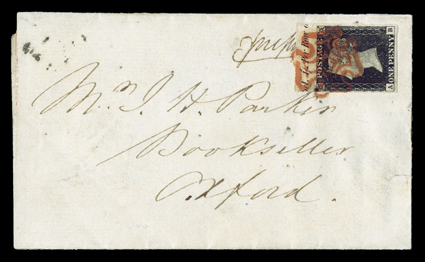 POSTAGE
A ONE PENNY B
Mr. J H Parker
Bookseller
Oxford.